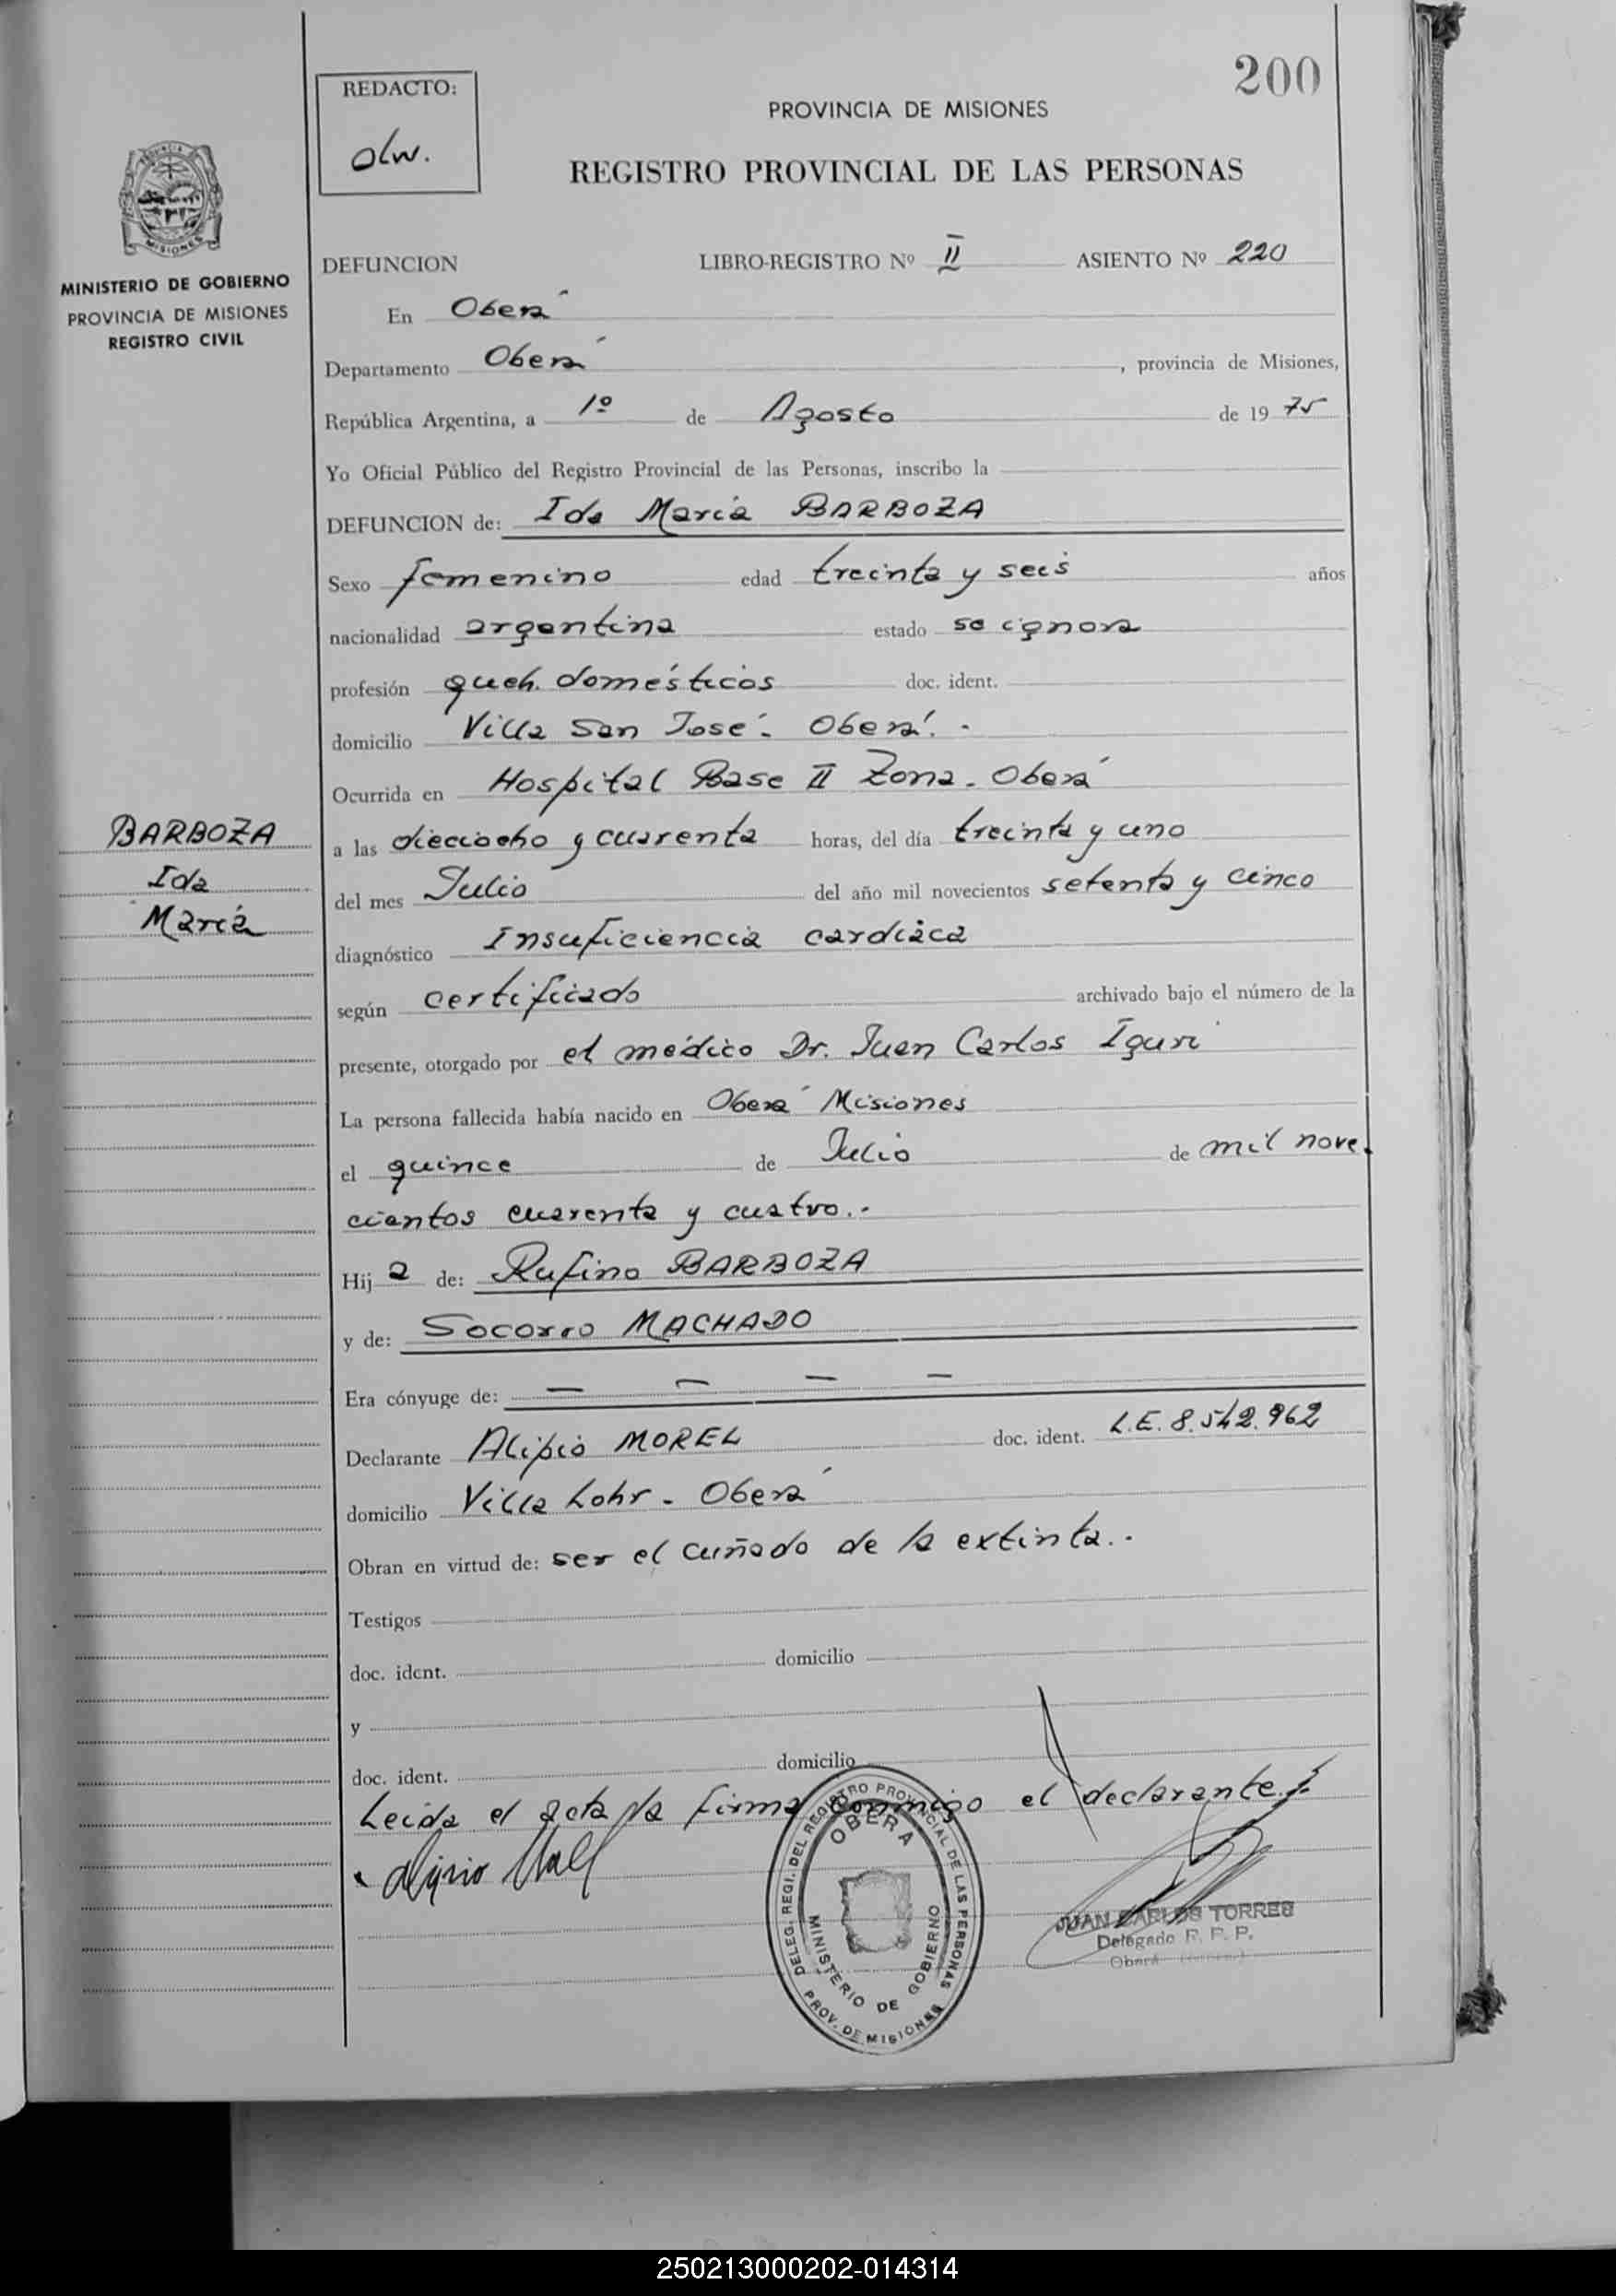 200
REDACTO:
olw.
PROVINCIA DE MISIONES
REGISTRO PROVINCIAL DE LAS PERSONAS
MISIONES
MINISTERIO DE GOBIERNO
PROVINCIA DE MISIONES
REGISTRO CIVIL
DEFUNCION LIBRO-REGISTRO Nº II ASIENTO Nº 220
En Oberá
Departamento Oberá, provincia de Misiones,
República Argentina, a 1º de Agosto de 1975
Yo Oficial Público del Registro Provincial de las Personas, inscribo la
DEFUNCION de: Ida María BARBOZA
Sexo femenino edad treinta y seis años
nacionalidad argentina estado se ignora
profesión queh. domésticos doc. ident.
domicilio Villa San José - Oberá. -
Ocurrida en Hospital Base II Zona - Oberá
a las dieciocho y cuarenta horas, del día treinta y uno
del mes Julio del año mil novecientos setenta y cinco
diagnóstico Insuficiencia cardíaca
según certificado archivado bajo el número de la
presente, otorgado por el médico Dr. Juan Carlos Iguri
La persona fallecida había nacido en Oberá Misiones
el quince de Julio de mil nove-
cientos cuarenta y cuatro.-
Hija de: Rufino BARBOZA
y de: Socorro MACHADO
Era cónyuge de: — — — —
Declarante Alipio MOREL doc. ident. L.E. 8.542.962
domicilio Villa Lohr - Oberá
Obran en virtud de: ser el cuñado de la extinta.-
Testigos
doc. ident. domicilio
y
doc. ident. domicilio
Leida el acta la firma conmigo el declarante.-
BARBOZA
Ida
María
DELEG. REGI. DEL REGISTRO PROVINCIAL DE LAS PERSONAS
OBERA
MINISTERIO DE GOBIERNO
PROV. DE MISIONES
JUAN CARLOS TORRES
Delegado R. P. P.
Oberá
250213000202-014314